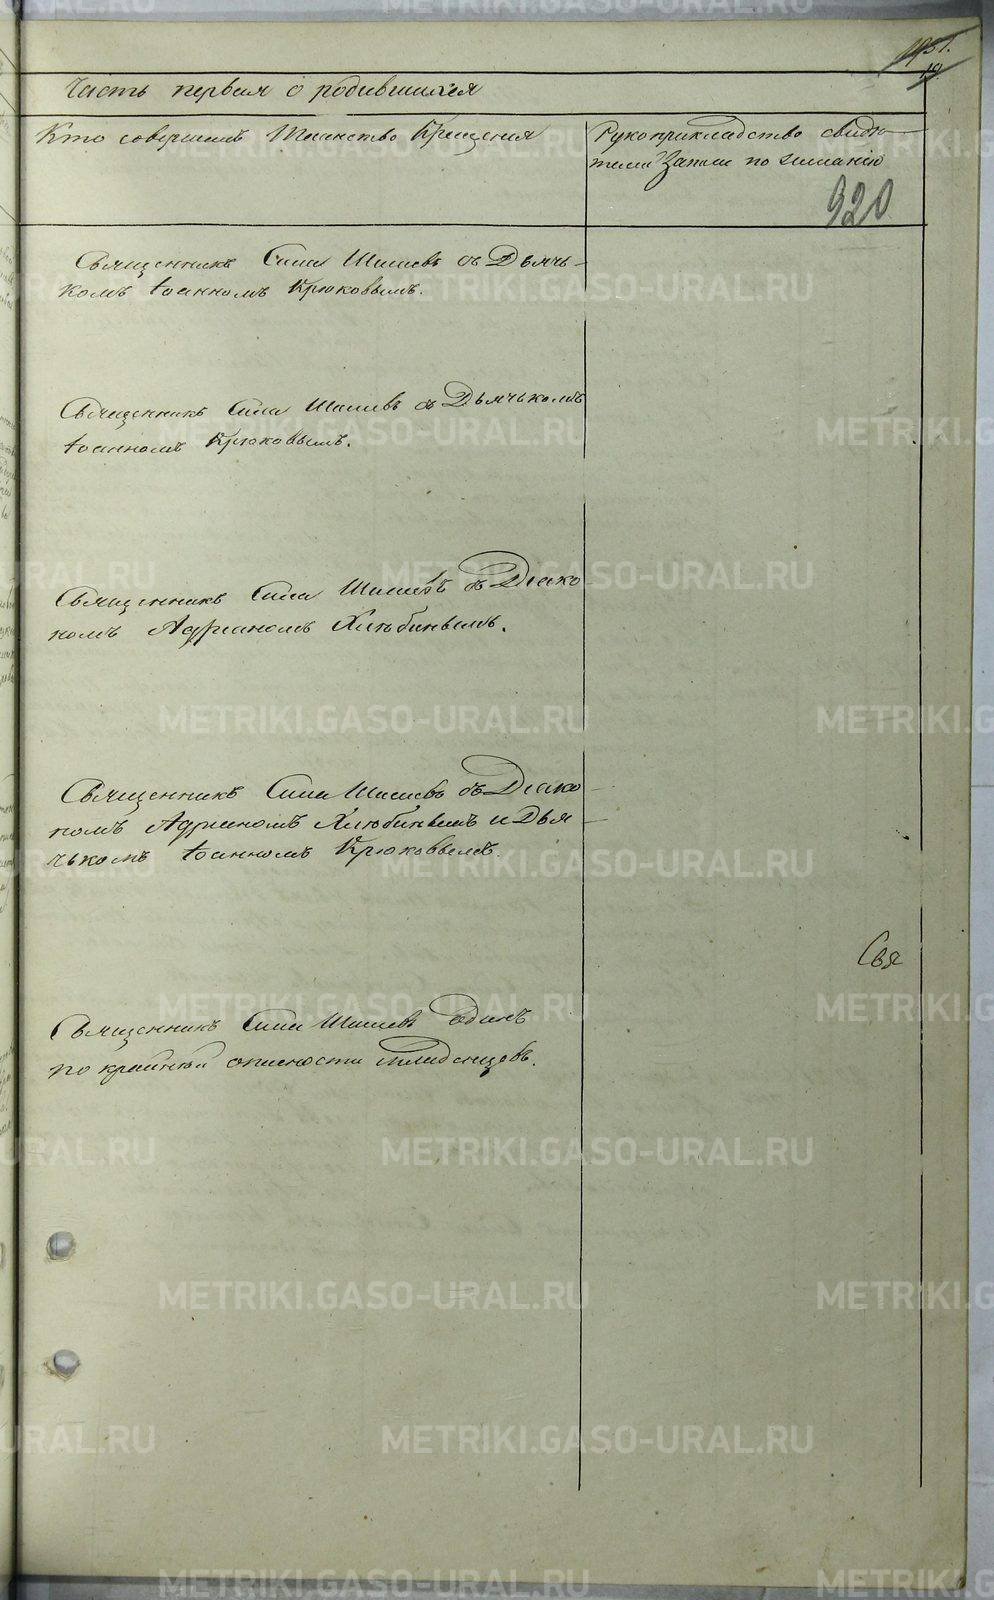 1931.
19
Часть первая о родившихся
Кто совершалъ Таинство Крещения
Рукоприкладство свидѣ-
телей Записи по желанію
920
Священникъ Сила Шишевъ съ Дьячь-
комъ Iоанномъ Крюковымъ.
Священникъ Сила Шишевъ съ Дьячькомъ
Iоанномъ Крюковымъ.
Священникъ Сила Шишевъ съ Діако-
номъ Адрианомъ Хлюбинвымъ.
Священникъ Сила Шишевъ съ Діако-
номъ Адрианомъ Хлюбинвымъ и Дья-
чькомъ Iоанномъ Крюковымъ.
Свя
Священникъ Сила Шишевъ одинъ
по крайнѣй опасности младенцовъ.
METRIKI.GASO-URAL.RU